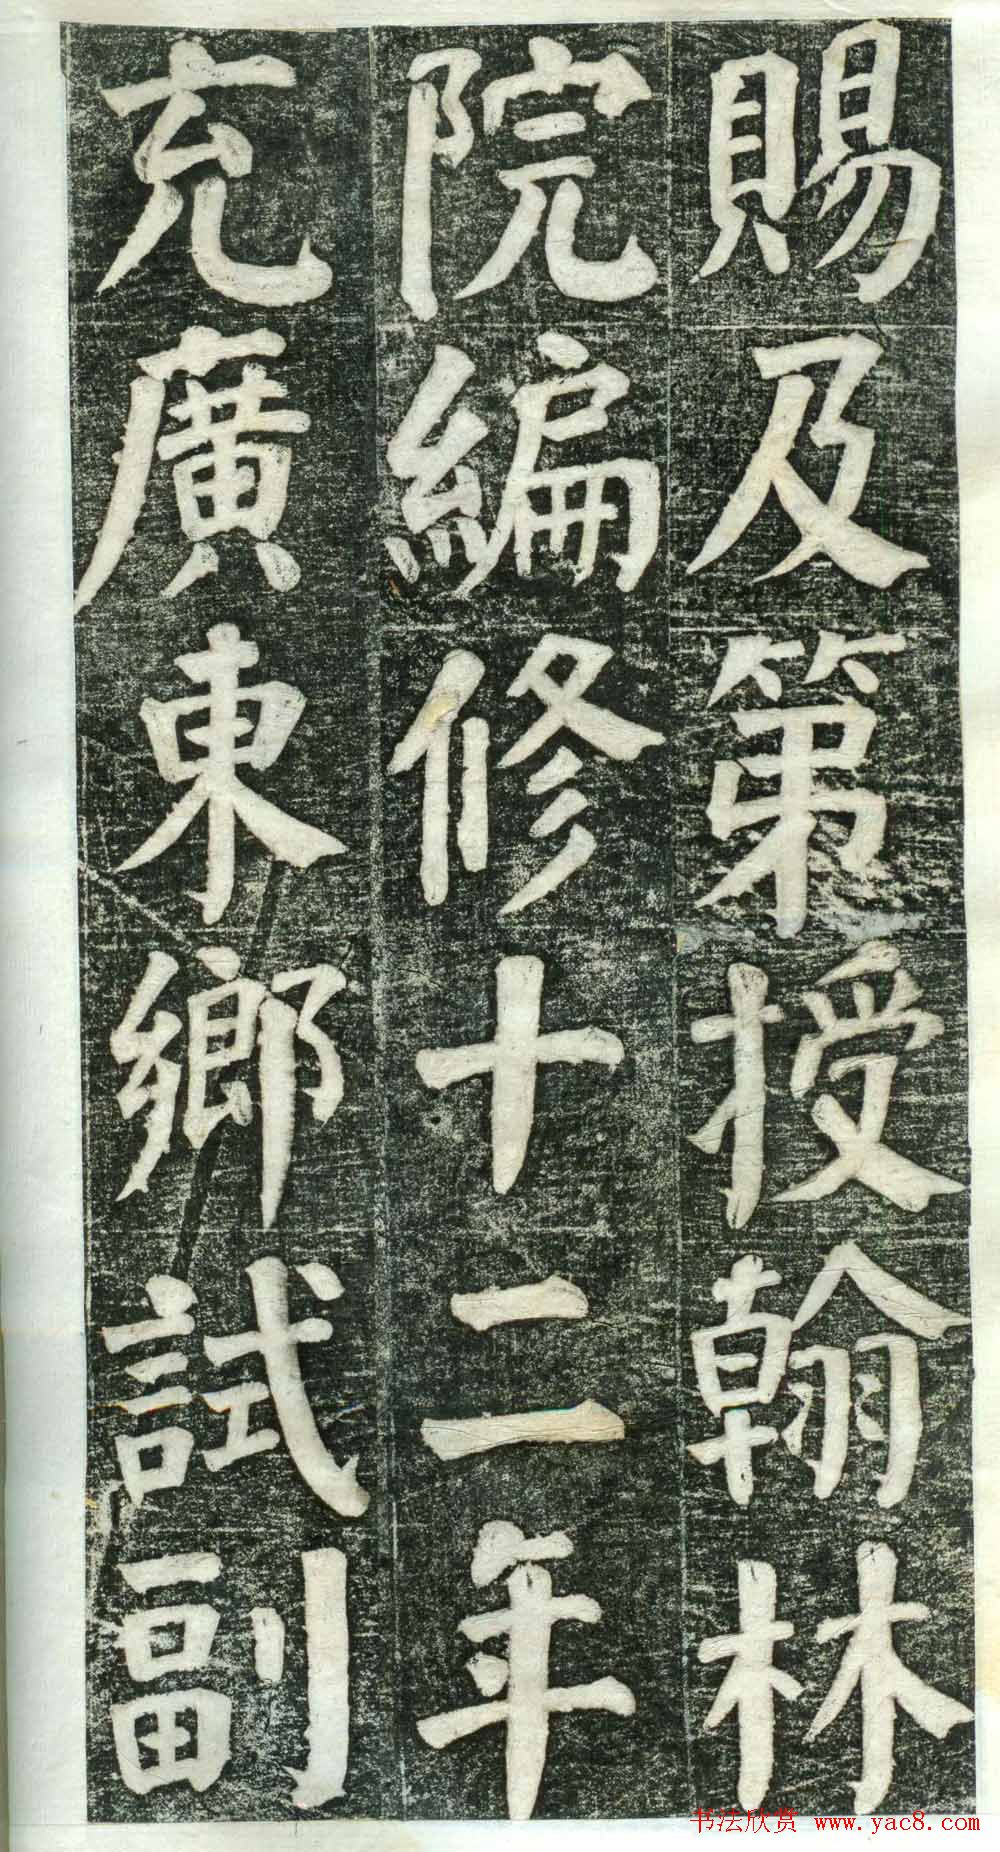 賜及第授翰林
院編修十二年
充廣東鄉試副
书法欣赏 www.yac8.com